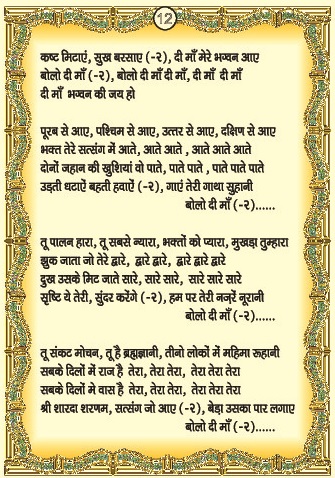 12
कष्ट मिटाएं, सुख बरसाए (-२), दी माँ मेरे भग्वन आए
बोलो दी माँ (-२), बोलो दी माँ दी माँ, दी माँ दी माँ
दी माँ भग्वन की जय हो
पूरब से आए, पश्चिम से आए, उत्तर से आए, दक्षिण से आए
भक्त तेरे सत्संग में आते, आते आते , आते आते आते
दोनों जहान की खुशियां वो पाते, पाते पाते , पाते पाते पाते
उड़ती घटाऐं बहती हवाऐं (-२), गाएं तेरी गाथा सुहानी
बोलो दी माँ (-२)......
तू पालन हारा, तू सबसे न्यारा, भक्तों को प्यारा, मुखड़ा तुम्हारा
झुक जाता जो तेरे द्वारे, द्वारे द्वारे, द्वारे द्वारे द्वारे
दुख उसके मिट जाते सारे, सारे सारे, सारे सारे सारे
सृष्टि ये तेरी, सुंदर करेंगे (-२), हम पर तेरी नज़रें नूरानी
बोलो दी माँ (-२)......
तू संकट मोचन, तू है ब्रह्मज्ञानी, तीनो लोकों में महिमा रूहानी
सबके दिलों में राज है तेरा, तेरा तेरा, तेरा तेरा तेरा
सबके दिलों मे वास है तेरा, तेरा तेरा, तेरा तेरा तेरा
श्री शारदा शरणम, सत्संग जो आए (-२), बेड़ा उसका पार लगाए
बोलो दी माँ (-२)......